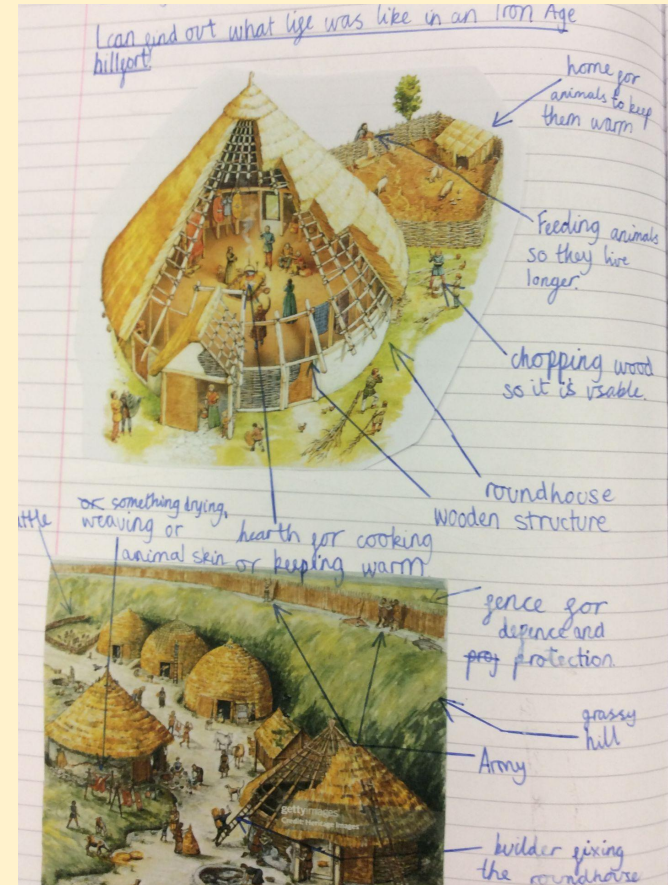 I can find out what life was like in an Iron Age
hillfort!
home for
animals to keep
them warm
Feeding animals
so they live
longer.
chopping wood
so it is usable.
roundhouse
wooden structure
hearth for cooking
or keeping warm
or something drying,
weaving or
animal skin
fence for
defence and
proj protection.
grassy
hill
Army
gettyimages
Credit: Heritage Images
builder fixing
the roundhouse